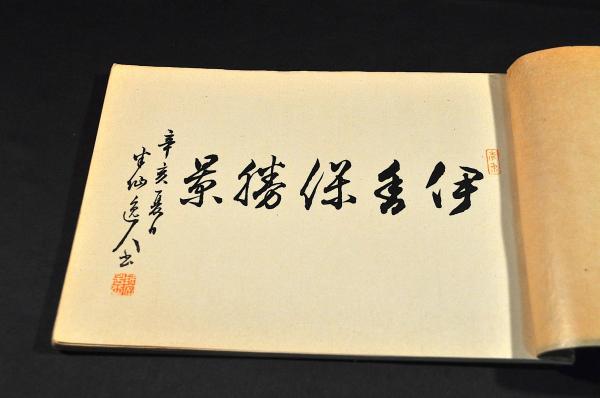 伊香保勝景
辛亥夏日
半仙逸人书